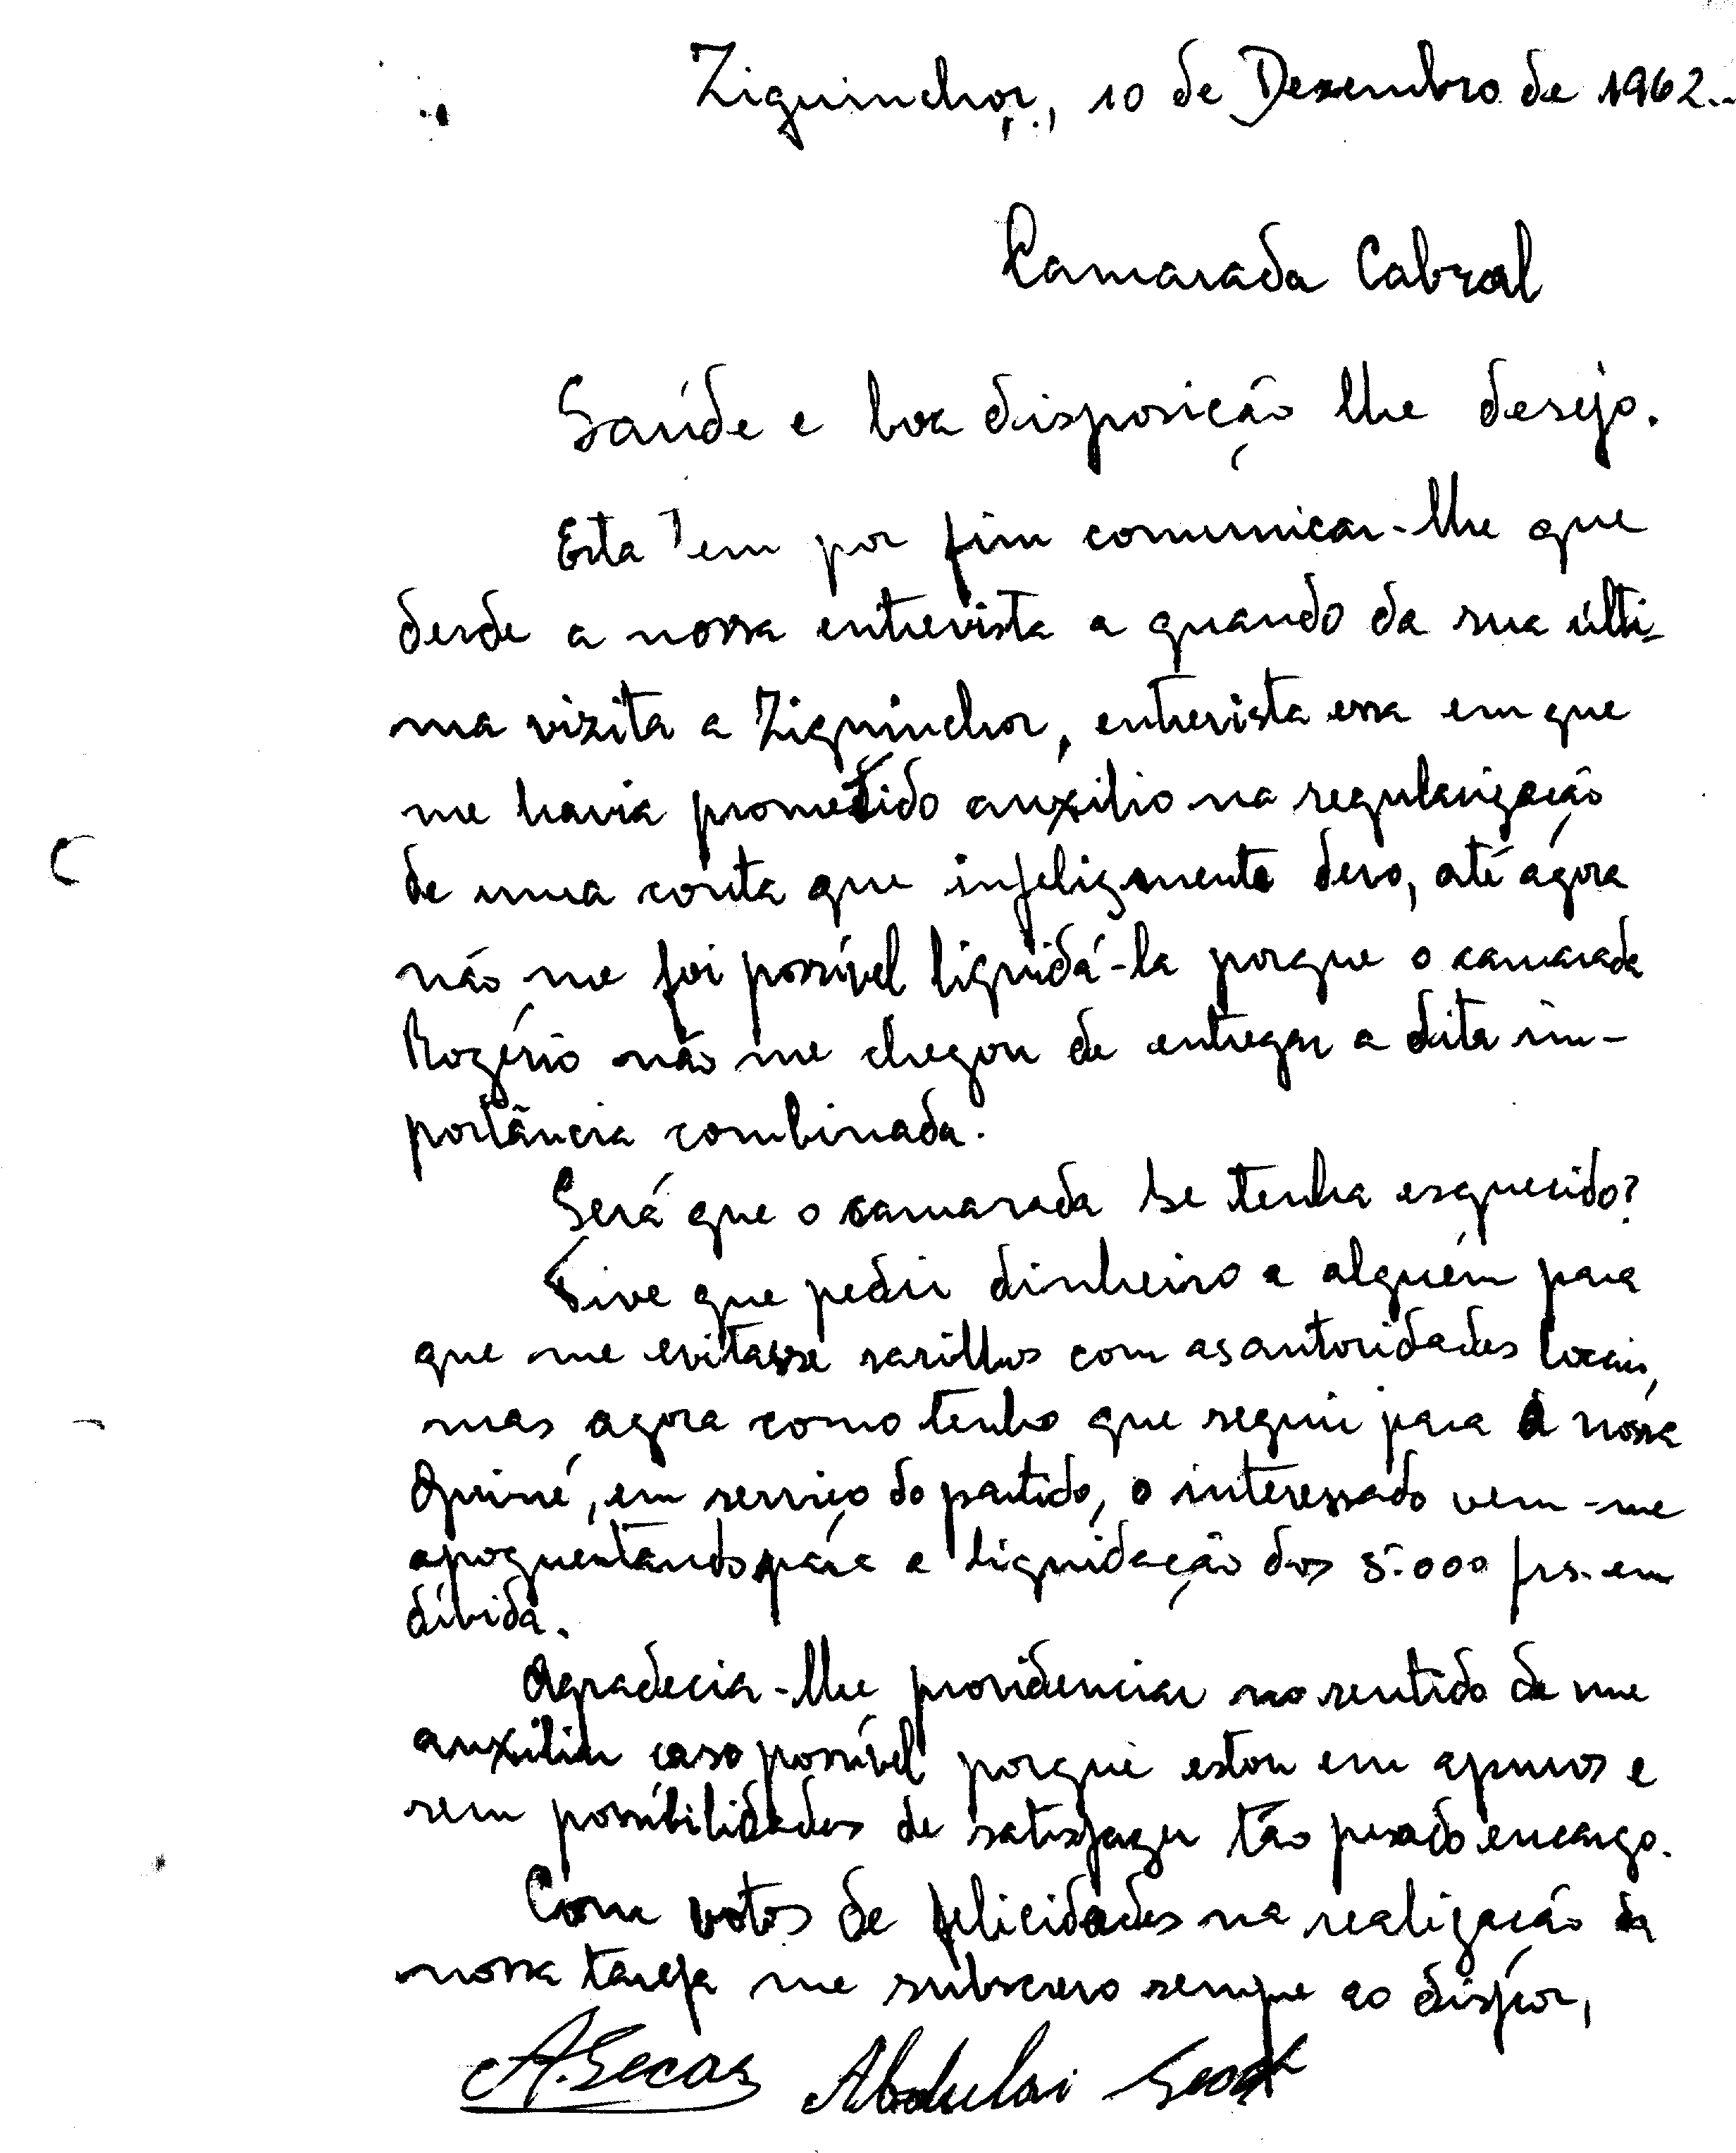 Ziguinchor, 10 de Dezembro de 1962.
Camarada Cabral
Saúde e boa disposição lhe desejo.
Esta tem por fim comunicar-lhe que
desde a nossa entrevista a quando da sua últi-
ma vizita a Ziguinchor, entrevista essa em que
me havia prometido auxílio na regularização
de uma conta que infelizmente devo, até agora
não me foi possível liquidá-la porque o camarada
Rogério não me chegou de entregar a dita im-
portância combinada.
Será que o camarada se tenha esquecido?
Tive que pedir dinheiro a alguém para
que me evitasse sarilhos com as autoridades locais,
mas agora como tenho que seguir para a nossa
Guiné, em serviço do partido, o interessado vem-me
apoquentando para a liquidação dos 5.000 frs. em
dívida.
Agradecia-lhe providenciar no sentido de me
auxiliar caso possível porque estou em apuros e
sem possibilidades de satisfazer tão pesado encargo.
Com votos de felicidades na realização da
nossa tarefa me subscrevo sempre ao dispor,
A. Secas Abdulai